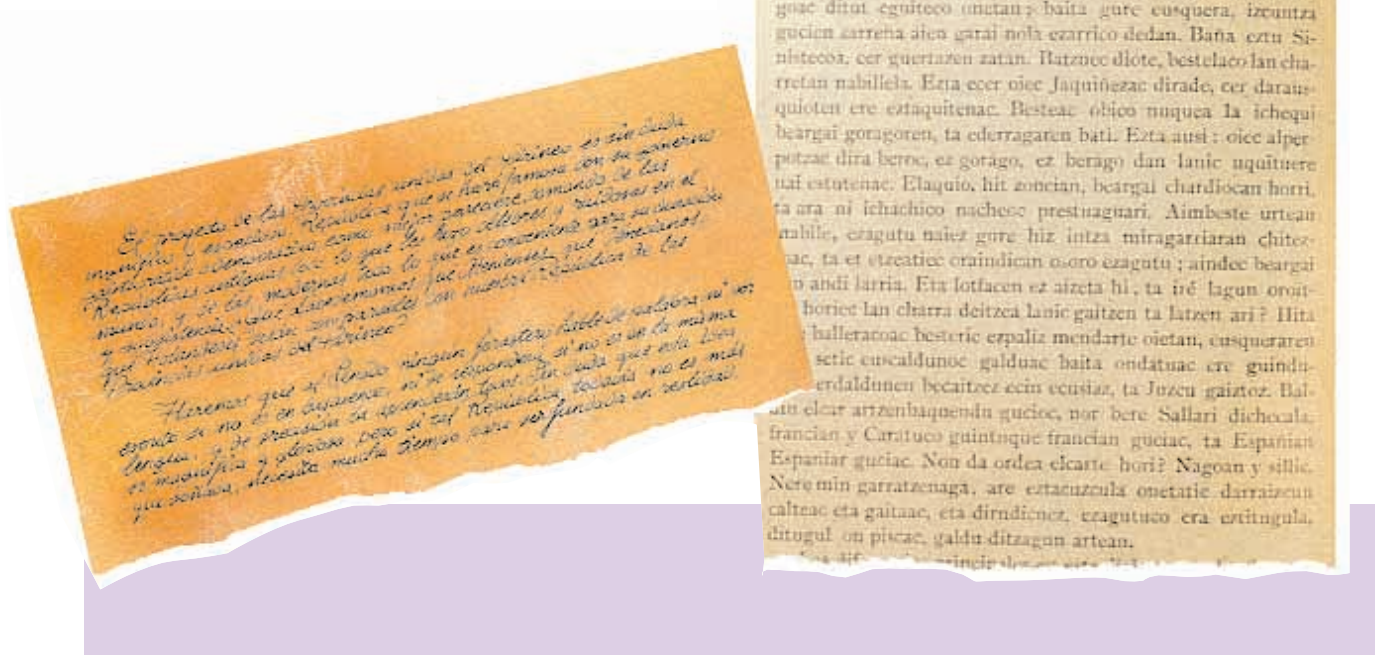 El proyecto de las Provincias unidas del Pirineo es sin duda
magnífico y especioso. República que se hará famosa con su gobierno
aristocrático o democrático como mejor pareciere tomando de las
Repúblicas antiguas todo lo que las hizo célebres y ruidosas en el
mundo, y de las modernas todo lo que es conveniente para su duración
y subsistencia, que
que serán comparados con nuestra República de las
Provincias unidas del Pirineo?
Haremos que al ningun forastero hable de palabra ni por
escrito si no es en ni se responderá si no es en la misma
lengua, y de precisión se aprenderán Sin duda que esta idea
es magnífica y gloriosa pero si tal República todavía no es más
que soñada, necesita mucho tiempo para ser fundada en realidad.
ditut eguiteco onetan; baita gure eusquera, izcuntza
gucien zarreña aien garai nola ezarrico dedan. Baña eztu Si-
nistecoa, cer guertatzen zatan. Batzuec diote, bestelaco lan cha-
rretan nabillela. Ezta ecer oiec Jaquiñezac dirade, cer daraus-
quioten ere eztaquitenac. Besteac obico nuquea la ichequi
beargai goragoren, ta ederragaren bati. Ezta ausi: oiec alper-
potzac dira beroc, ez gorago, ez berago dan lanic uquîtuere
nai estutenac. Elaquio, hit zoncian, beargai chardiocan horri,
ta ara ni ichachico nachecc prestuaguari. Aimbeste urtean
nabile, ezagutu naiez gure hiz intza miragarriaran chitez-
nac, ta et etzeatiec oraindican osoro ezagutu; aindec beargai
andi larria. Eta lotfacen ez aizeta hi, ta iré lagun oroit-
horiec lan charra deitzea lanic gaitzen ta latzen ari? Hita
balleracoac besteric ezpaliz mendarte oietan, eusqueraren
setic euscaldunoc galduac baita ondatuac ere guindu-
erdaldunen becaitzez ecin ecusiaz, ta Juzcu gaiztoz. Bal-
din elcar artzenbaquendu gucioc, nor bere Sallari dichecala,
francian y Caratuco guintuque francian guciac, ta Españian
Espaniar guciac. Non da ordea elcarte hori? Nagoan y sillic.
Nere min garratzenaga, are eztacuzcula onetatic darraizcun
calteac eta gaitaac, eta dirudienez, ezagutuco era eztitugula,
ditugul on piscac, galdu ditzagun artean.